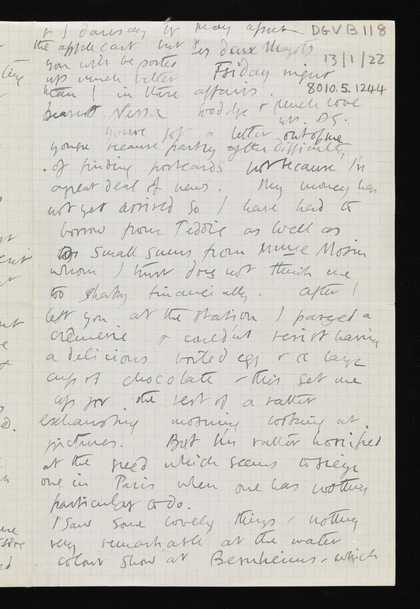 & I daresay it may upset DGVB 118
the applecart but Les deux Magots 13/1/22
you will be posted Friday night
up much better 8010.5.1244
than I in these affairs.
dearest Nessa goodbye & much love
yrs. DG.
you've got a letter out of me
partly of the difficulty
of finding postcards not because I've
a great deal of news. My money has
not yet arrived so I have had to
borrow from Teddie as well as
small sums from Mme Morin
whom I trust does not think me
too shaky financially. After I
left you at the station I passed a
crêmerie & couldn't resist having
a delicious boiled egg & a large
cup of chocolate & this set me
up for the rest of a rather
exhausting morning looking at
pictures. But I'm rather horrified
at the greed which seems to seize
one in Paris when one has nothing
particular to do.
I saw some lovely things, nothing
very remarkable at the water
colour show at Bernheims, which